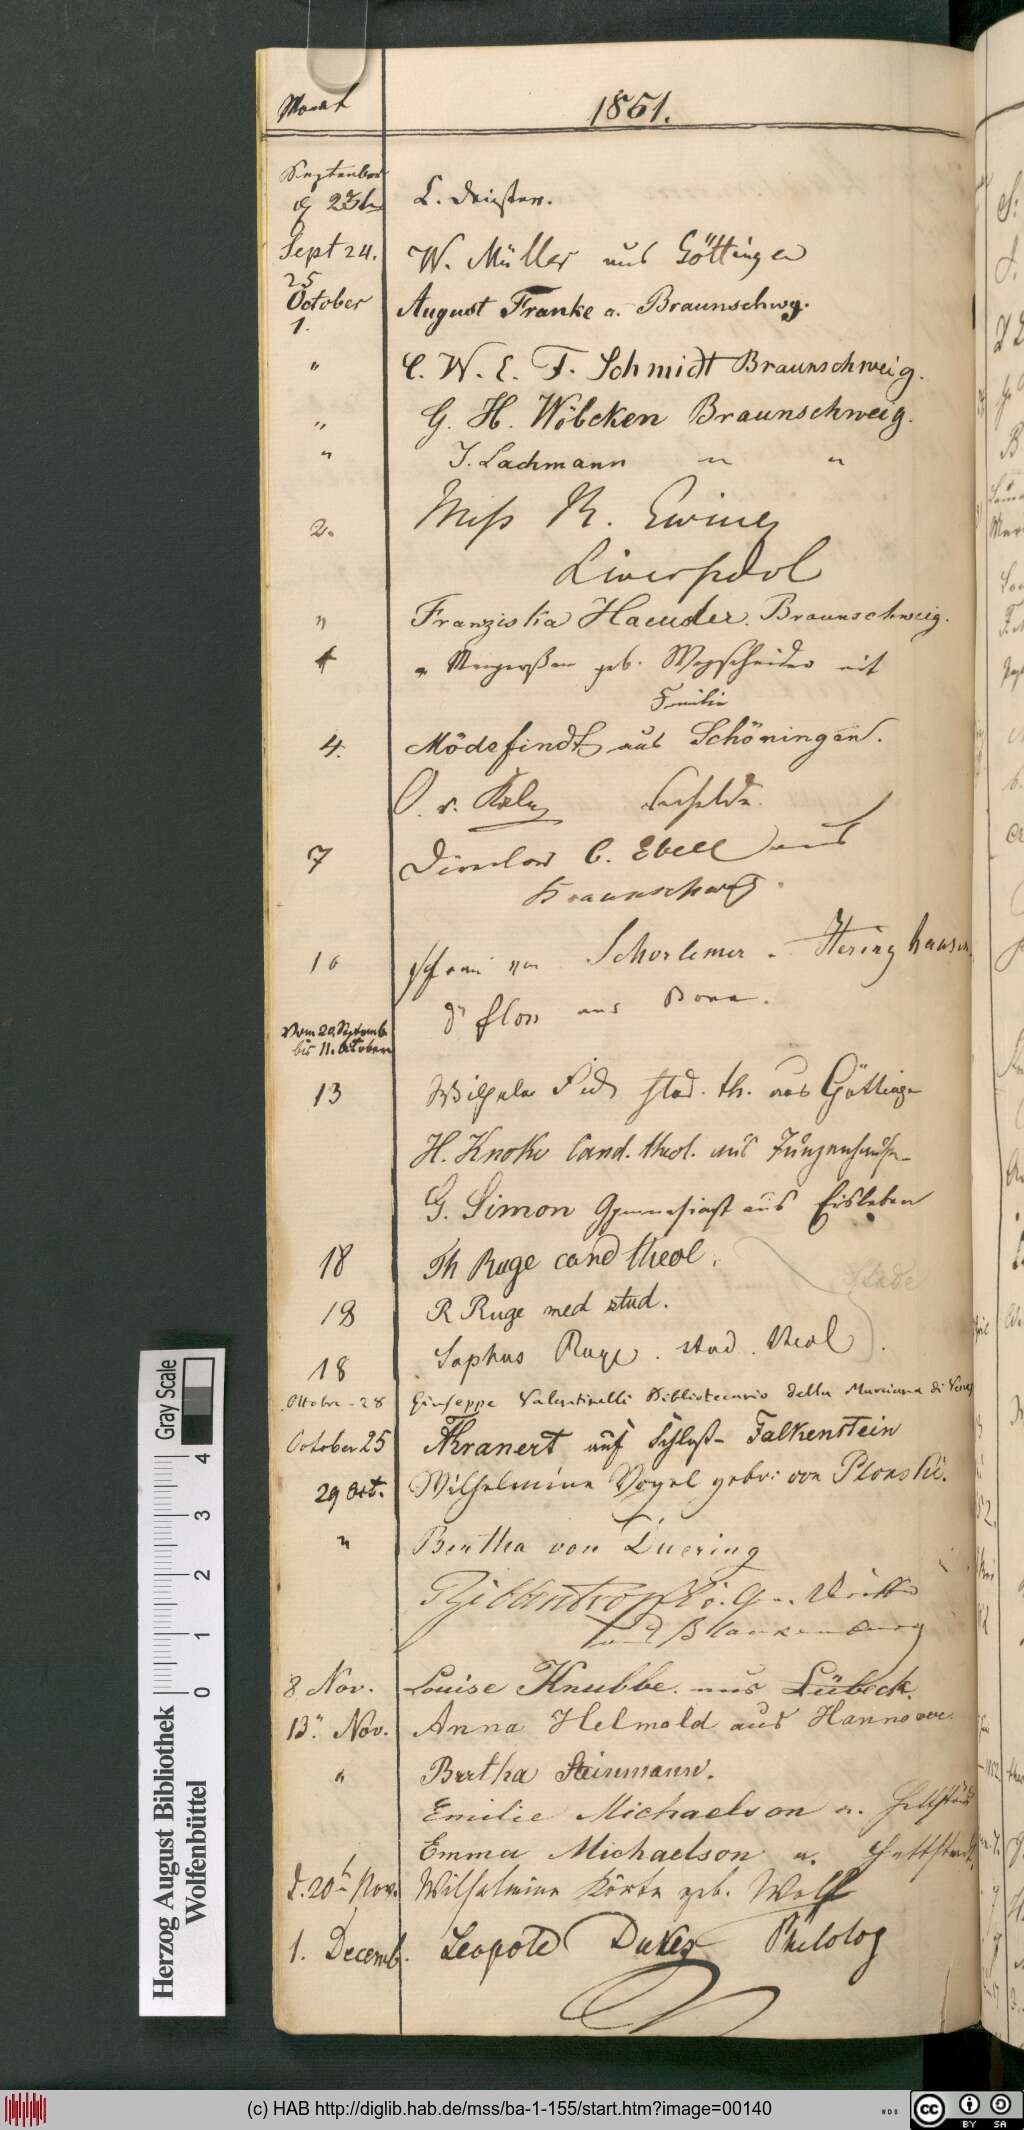 Monat
1851.
September
d 23t
L. Dris̄ten.
Sept 24.
W. Müller aus Göttingen
25
October
1.
August Franke a. Braunschwg.
"
C. W. E. F. Schmidt Braunschweig.
"
G. H. Wöbcken Braunschweig.
"
J. Lachmann " "
2.
Miss R. Ewing
Liverpool
"
Franziska Haeusler. Braunschweig.
geb. Wegscheider mit
Familie
4.
Mödefindt aus Schöningen.
O. v.
7
Director C. Ebell aus
Braunschweig.
10
von Schorlemer - Heringhausen
aus Bonn.
Vom 20. Septemb.
bis 11. October
13
Wilhelm stud. th. aus Göttingen
H. Knoke Cand. theol. aus
G. Simon Gymnasiast aus Eisleben
18
Th Ruge cand theol.
Stade
18
R Ruge med stud.
18
Sophus Ruge. stud. theol.
Ottobre - 28
Giuseppe Valentinelli Bibliotecario della Marciana di Venez
October 25
Thranert auf Schloß Falkenstein
29 Oct.
Wilhelmine Vogel gebr: von Plonski.
"
Bertha von Duering
Ribbentrop
Blankenburg
8 Nov.
Louise Knubbe aus Lübeck.
13." Nov.
Anna Helmold aus Hannover.
"
Bertha Steinmann.
Emilie Michaelson a. Hettstädt
Emma Michaelson a. Hettstedt.
d. 20t Nov.
Wilhelmine Körte geb. Wolf
1. Decemb.
Leopold Dukes Philolog
Gray Scale
4
3
2
1
0
Herzog August Bibliothek
Wolfenbüttel
(c) HAB http://diglib.hab.de/mss/ba-1-155/start.htm?image=00140
WDB
cc
BY SA